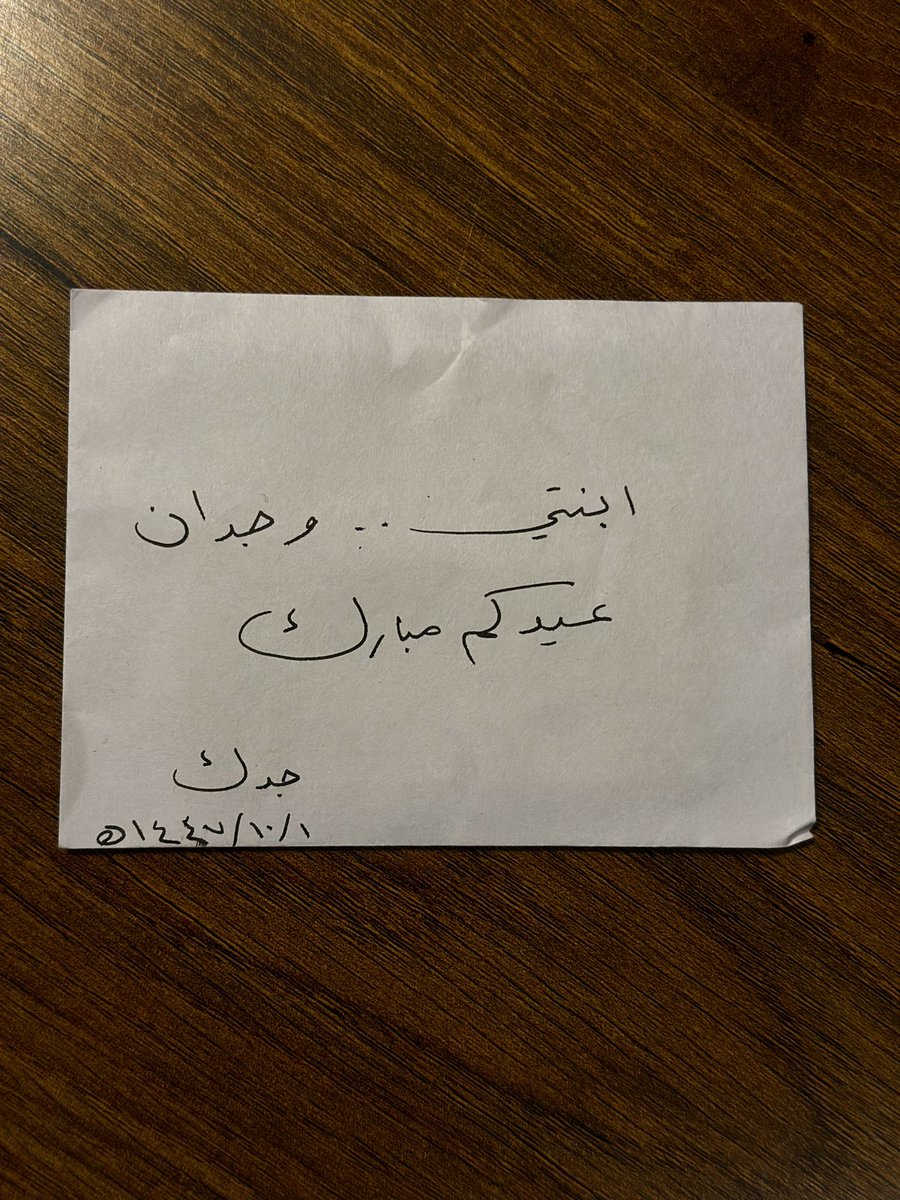 ابنتي .. وجدان
عيدكم مبارك
جدك
١٤٤٧/١٠/١ هـ